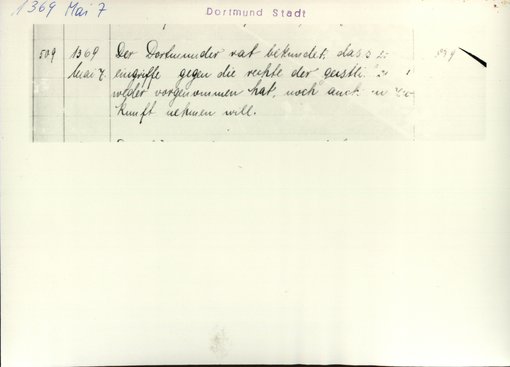 1369 Mai 7
Dortmund Stadt
509 1369 Der Dortmunder rat bekundet, dass
Mai 7. eingriffe gegen die rechte der geistl.
weder vorgenommen hat, noch auch in zu-
kunft nehmen will.